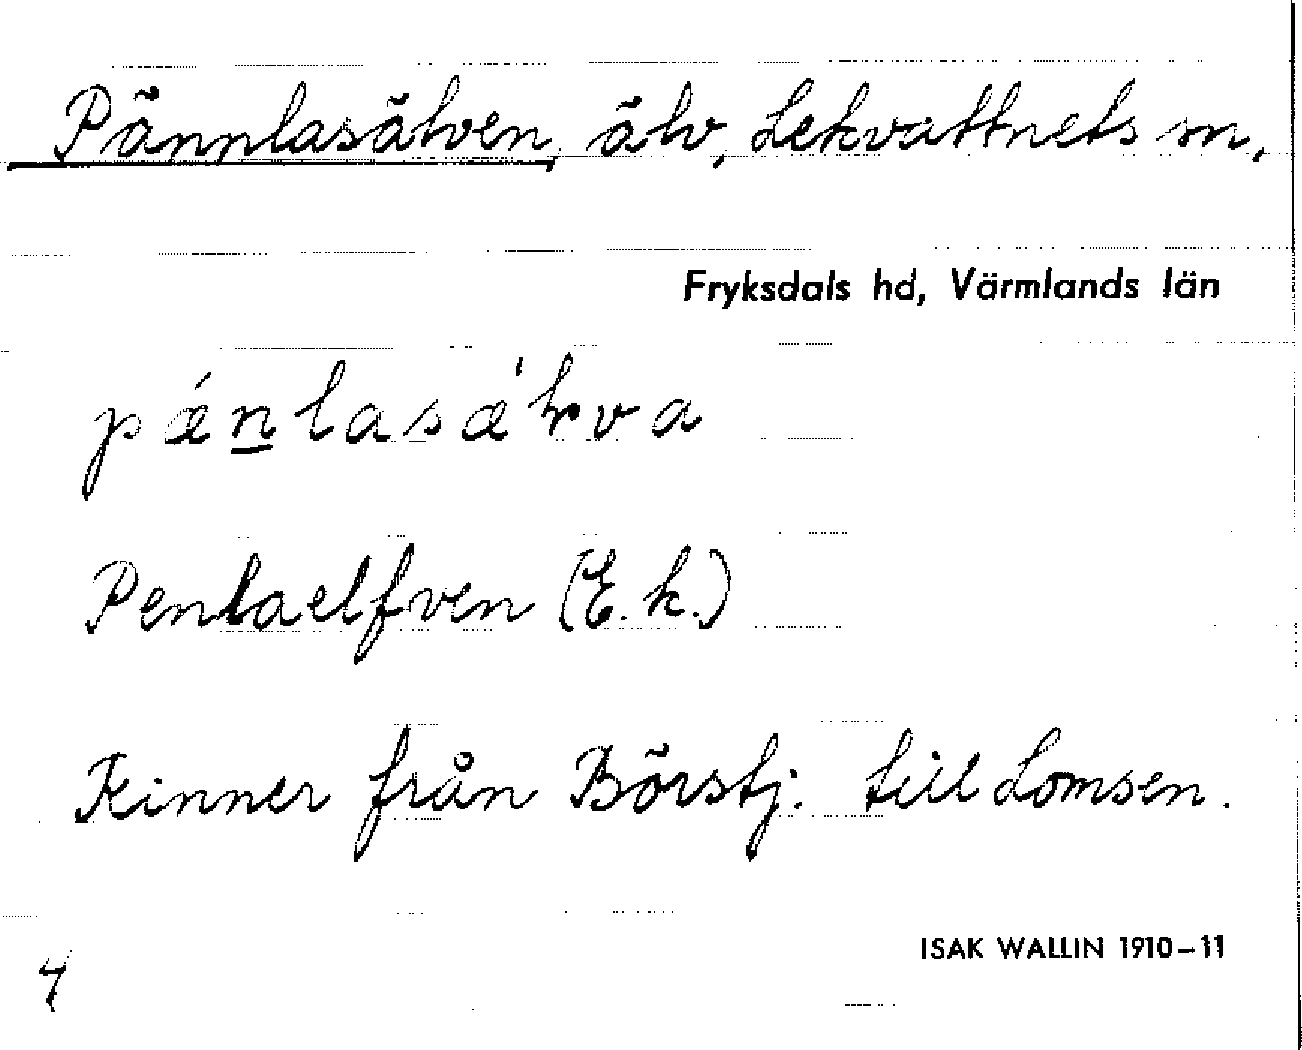 Pännlasälven, älv, Lekvattnets sn,
Fryksdals hd, Värmlands län
Pentaelfven (E.k.)
Rinner från Börstj. till Lomsen.
ISAK WALLIN 1910–11
4